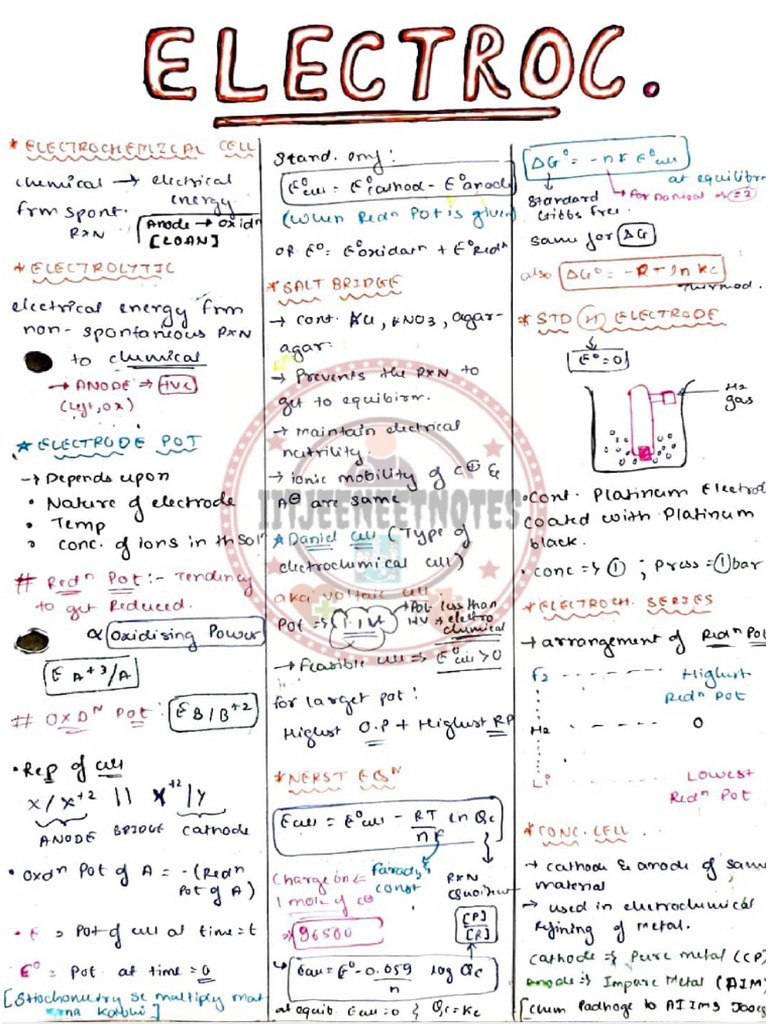 ELECTROC.
* ELECTROCHEMICAL CELL
chemical → electrical
energy
frm spont.
RXN
Anode → Oxidⁿ
[LOAN]
* ELECTROLYTIC
electrical energy frm
non-spontaneous RXN
to chemical
→ ANODE ⇒ +ve
(left, ox)
* ELECTRODE POT
→ Depends upon
• Nature of electrode
• Temp
• conc. of ions in th solⁿ
# Redⁿ Pot :- Tendency
to get Reduced.
∝ Oxidising Power
E A⁺³/A
# OXDᴺ Pot : E B/B⁺²
• Rep of cell
X/X⁺² || X⁺²/Y
ANODE BRIDGE cathode
• Oxdⁿ Pot of A = -(Redⁿ
Pot of A)
• E = Pot of cell at time = t
E⁰ = Pot. at time = 0
[Stiochometry se multiply mat
karna Kabhi]
Stand. only:
E⁰cell = E⁰cathod - E⁰anode
(When Redⁿ Pot is given)
OR E⁰ = E⁰oxidatⁿ + E⁰Redⁿ
* SALT BRIDGE
→ cont. KCl, KNO3, agar-
agar.
→ Prevents the RXN to
get to equibirm.
→ maintain electrical
nutrility.
→ ionic mobility of C⊕ &
A⊖ are same
* Daniel cell (Type of
electrochemical cell)
aka voltaic cell
Pot ⇒ 1.1V
→ Pot less than
1.1V ⇒ electro
chemical
→ Feasible cell ⇒ E⁰cell > 0
for larget pot:
Highest O.P + Highest RP
* NERST EQᴺ
Ecell = E⁰cell - RT/nF ln Qc
Charge on
1 mole of e⊖
⇒ 96500
Farady's
const
RXN
Quoitent
[P]
[R]
Ecell = E⁰ - 0.059/n log Qc
at equib. Ecell = 0 & Qc = Kc
ΔG⁰ = -nF E⁰cell
at equilibrm
Standard
Gibbs free.
for Daniel n = 2
same for ΔG
also ΔG⁰ = -RT ln Kc
Thermod.
* STD H ELECTRODE
E⁰ = 0
H2
gas
• Cont. Platinum Electrod
coated with Platinum
black.
• conc ⇒ 1 ; Press = 1 bar
* ELECTROCH. SERIES
→ arrangement of Redⁿ Pot
F2 Highest
Redⁿ Pot
H2 0
Li Lowest
Redⁿ Pot
* CONC. CELL
→ cathode & anode of same
material
→ used in electrochemical
refining of metal.
cathode ⇒ Pure metal (CP)
anode ⇒ Impure Metal (AIM)
[Chem Padhoge to AIIMS Jaoge
IITJEENEETNOTES